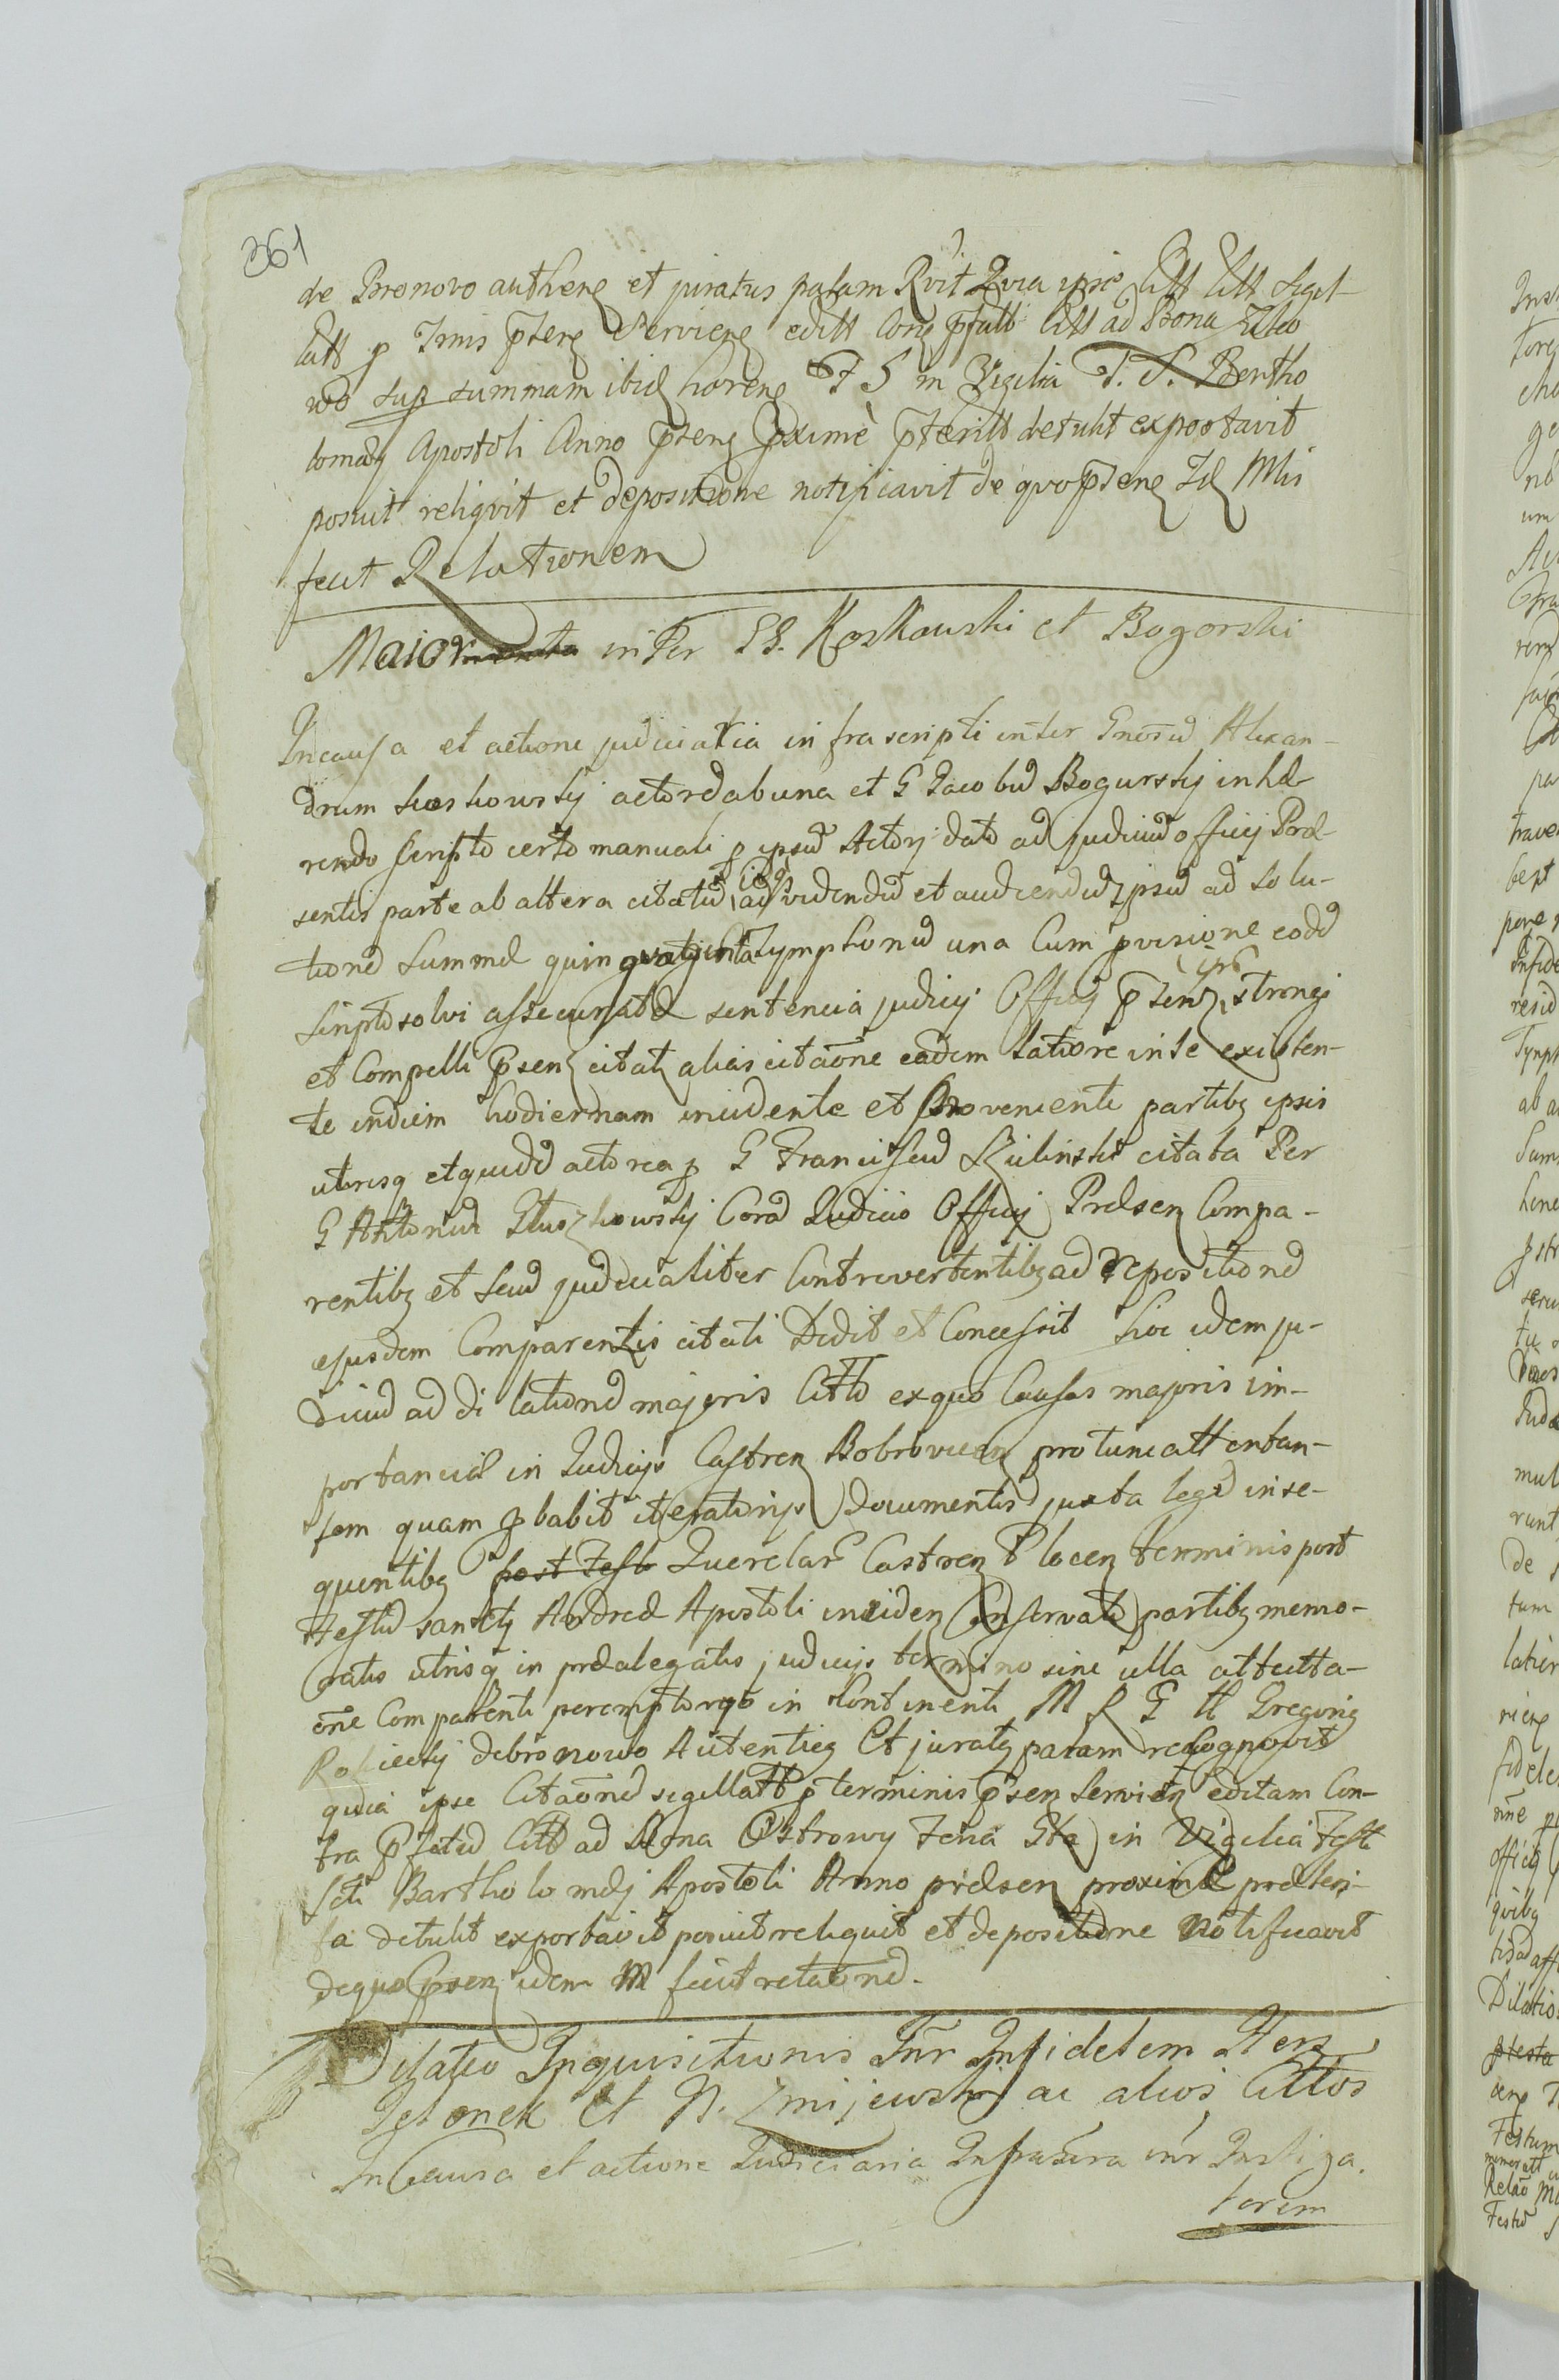 361
de Bronovo authens et juratus palam Rvit Qvia ipse Citt Citt Sigil-
latt p Trnis pstens Serviens editt Cons pfatt Citt ad Bona Zileo
wo sup summam ibid horens F 5 in Vigilia F. S. Bertho
lomæj Apostoli Anno pstens pximè pteritt detulit exportavit
posuit reliqvit et depositione notificavit de qvo pstens Id Mlis
fecit Relationem
Maior inter GG. Koskowski et Bogorski
In causa et actione judiciaria infrascripti inter Gnosū Alexan-
drum Koskowskj actorē ab una et G Jacobū Bogurskj inhæ-
rendo scripto certo manuali p ipsū Actorj dato ad judiciū officij Præ-
sentis parte ab altera citatū, ad videndū et audiendū ipsū ad solu-
tionē summæ quinquaginta Tymphonū una Cum pvisione eodē
scripto solvi assecuratæ sentencia judicij Officij psenz, strongi
et Compelli psenz citatz alias citaōne eadem latiore in se existen-
te in diem hodiernam incidente et proveniente partibz ipsis
utrisq etquidē actorea p G Franciscū Zilinski citata Per
G Antoniū Gluzkowskj Corā Judicio Officij Præsenz Compa-
rentibz et secū judicialiter Controvertentibz ad repositionē
ejusdem Comparentis citati Dedit et Concessit hoc idem ju-
diciū ad dilationē majoris Citto ex quo Causas majoris im-
portanciæ in Judicijs Castrenz Bobrovicenz pro tunc attentan-
tem quam pbabit iteratorijs Documentis juxta legē in se-
quentibz post Festo Querelarū Castrenz Plocenz terminis post
Festū sanctj Andreæ Apostoli incidenz Conservato partibz memo-
ratis utrisq in præalegatis judicijs termino sine ulla attentta-
ōne Comparenti peremptorio in Continenti M R G H Gregorig
de bronowo Autenticg Et juratg param recognovit
quia ipse Citaōnē sigillatt p terminis psenz Servienz editam Con-
tra pfatū Citt ad Bona Ostrowy Feria 5ta in Vigilia Festi
Scti Bartholomæj Apostoli Anno præsenz proximæ præteri-
ta detulit exportavit posuit reliquit et depositione Notificavit
de quo psenz idem M fecit relaōnē.
Dilatio Inquisitionis Inr Infidelem Herz
et N. Zmijewski ac alios Cittos
In Causa et actione Judiciaria Infrascra inr Instiga-
torem